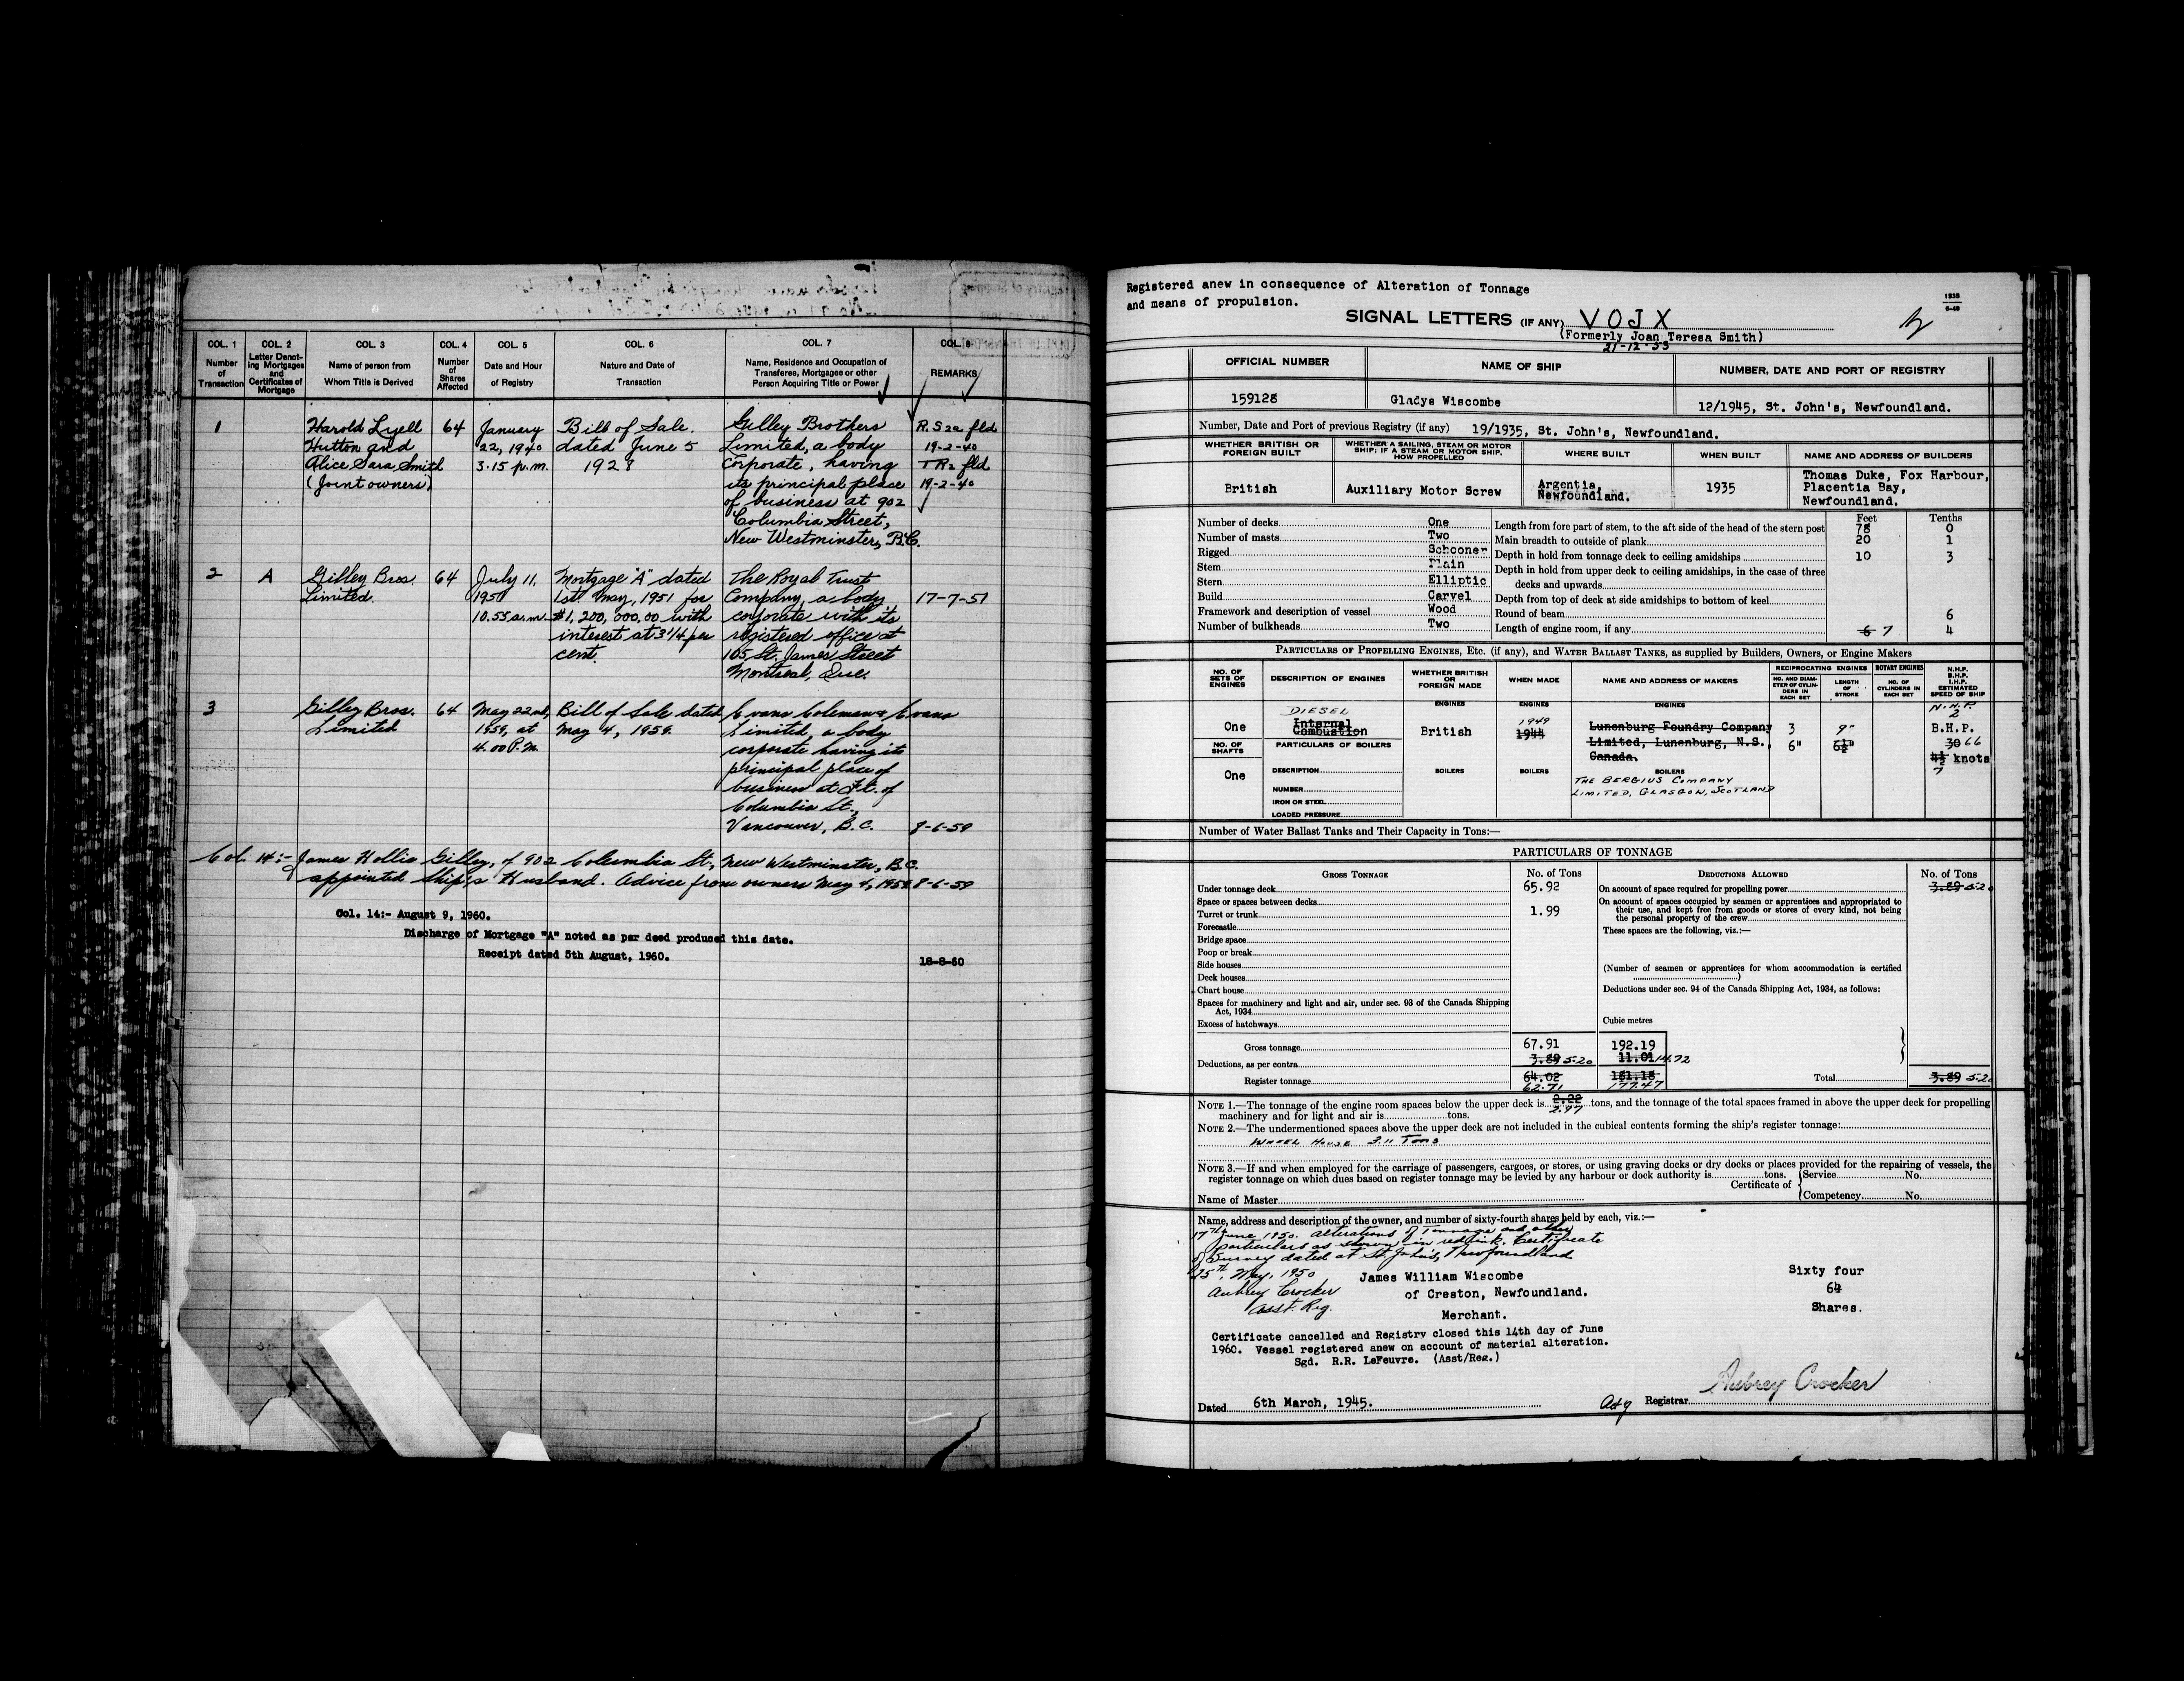 COL. 1 COL. 2 COL. 3 COL. 4 COL. 5 COL. 6 COL. 7 COL. 8
Number of Transaction
Letter Denoting Mortgages and Certificates of Mortgage
Name of person from Whom Title is Derived
Number of Shares Affected
Date and Hour of Registry
Nature and Date of Transaction
Name, Residence and Occupation of Transferee, Mortgagee or other Person Acquiring Title or Power
REMARKS
1
Harold Lyell
Hutton and
Alice Sara Smith
(Joint owners)
64
January
22, 1940
3.15 p.m.
Bill of Sale.
dated June 5
1928
Gilley Brothers
Limited, a body
corporate, having
its principal place
of business at 902
Columbia Street,
New Westminster, B.C.
R.S2a fld
19-2-40
TR2 fld
19-2-40
2
A
Gilley Bros.
Limited.
64
July 11,
1951
10.55 a.m.
Mortgage "A" dated
1st May, 1951 for
$1,200,000.00 with
interest at 3 1/4 per
cent.
The Royal Trust
Company, a body
corporate with its
registered office at
105 St. James Street
Montreal, Que.
17-7-51
3
Gilley Bros.
Limited
64
May 22nd,
1959, at
4.00 P.M.
Bill of Sale dated
May 4, 1959.
Evans Coleman & Evans
Limited, a body
corporate having its
principal place of
business at Ft. of
Columbia St.,
Vancouver, B.C.
8-6-59
Col. 14:- James Hollis Gilley, of 902 Columbia St., New Westminster, B.C.
appointed Ship's Husband. Advice from owners May 4, 1959 8-6-59
Col. 14:- August 9, 1960.
Discharge of Mortgage "A" noted as per deed produced this date.
Receipt dated 5th August, 1960.
18-8-60
Registered anew in consequence of Alteration of Tonnage
and means of propulsion.
SIGNAL LETTERS (IF ANY) VOJX
(Formerly Joan Teresa Smith)
21-12-33
OFFICIAL NUMBER
NAME OF SHIP
NUMBER, DATE AND PORT OF REGISTRY
159128
Gladys Wiscombe
12/1945, St. John's, Newfoundland.
Number, Date and Port of previous Registry (if any) 19/1935, St. John's, Newfoundland.
WHETHER BRITISH OR FOREIGN BUILT
WHETHER A SAILING, STEAM OR MOTOR SHIP; IF A STEAM OR MOTOR SHIP, HOW PROPELLED
WHERE BUILT
WHEN BUILT
NAME AND ADDRESS OF BUILDERS
British
Auxiliary Motor Screw
Argentia,
Newfoundland.
1935
Thomas Duke, Fox Harbour,
Placentia Bay,
Newfoundland.
Number of decks One
Number of masts Two
Rigged Schooner
Stem Plain
Stern Elliptic
Build Carvel
Framework and description of vessel Wood
Number of bulkheads Two
Feet Tenths
Length from fore part of stem, to the aft side of the head of the stern post 78 0
Main breadth to outside of plank 20 1
Depth in hold from tonnage deck to ceiling amidships 10 3
Depth in hold from upper deck to ceiling amidships, in the case of three
decks and upwards
Depth from top of deck at side amidships to bottom of keel
Round of beam 6
Length of engine room, if any 6 7 4
PARTICULARS OF PROPELLING ENGINES, ETC. (if any), and WATER BALLAST TANKS, as supplied by Builders, Owners, or Engine Makers
NO. OF SETS OF ENGINES
DESCRIPTION OF ENGINES
WHETHER BRITISH OR FOREIGN MADE
WHEN MADE
NAME AND ADDRESS OF MAKERS
RECIPROCATING ENGINES
ROTARY ENGINES
NO. AND DIAMETER OF CYLINDERS IN EACH SET
LENGTH OF STROKE
NO. OF CYLINDERS IN EACH SET
N.H.P. B.H.P. I.H.P. ESTIMATED SPEED OF SHIP
ENGINES ENGINES ENGINES
One
DIESEL
Internal
Combustion
British
1949
1944
Lunenburg Foundry Company
Limited, Lunenburg, N.S.,
Canada.
3
6"
9"
6½"
N.H.P.
2
B.H.P.
30 66
4½ knots
7
NO. OF SHAFTS
One
PARTICULARS OF BOILERS
DESCRIPTION
NUMBER
IRON OR STEEL
LOADED PRESSURE
BOILERS BOILERS BOILERS
THE BERGIUS COMPANY
LIMITED, GLASGOW, SCOTLAND
Number of Water Ballast Tanks and Their Capacity in Tons:—
PARTICULARS OF TONNAGE
GROSS TONNAGE No. of Tons DEDUCTIONS ALLOWED No. of Tons
Under tonnage deck 65.92
Space or spaces between decks
Turret or trunk 1.99
Forecastle
Bridge space
Poop or break
Side houses
Deck houses
Chart house
Spaces for machinery and light and air, under sec. 93 of the Canada Shipping
Act, 1934
Excess of hatchways
On account of space required for propelling power 3.89 5.20
On account of spaces occupied by seamen or apprentices and appropriated to
their use, and kept free from goods or stores of every kind, not being
the personal property of the crew
These spaces are the following, viz.:—
(Number of seamen or apprentices for whom accommodation is certified
)
Deductions under sec. 94 of the Canada Shipping Act, 1934, as follows:
Cubic metres
Gross tonnage 67.91 192.19
Deductions, as per contra 3.89 5.20 11.01 14.72
Register tonnage 64.02 181.18 Total 3.89 5.20
62.71 177.47
NOTE 1.—The tonnage of the engine room spaces below the upper deck is 2.22 tons, and the tonnage of the total spaces framed in above the upper deck for propelling
2.97
machinery and for light and air is tons.
NOTE 2.—The undermentioned spaces above the upper deck are not included in the cubical contents forming the ship's register tonnage:
WHEEL HOUSE 3.11 TONS
NOTE 3.—If and when employed for the carriage of passengers, cargoes, or stores, or using graving docks or dry docks or places provided for the repairing of vessels, the
register tonnage on which dues based on register tonnage may be levied by any harbour or dock authority is tons.
Certificate of
Service No.
Competency No.
Name of Master
Name, address and description of the owner, and number of sixty-fourth shares held by each, viz.:—
17th June 1950. Alterations of Tonnage and other
particulars as shown in red ink. Certificate
of Survey dated at St. John's, Newfoundland
25th, May, 1950
Aubrey Crocker
Asst. Reg.
James William Wiscombe
of Creston, Newfoundland.
Merchant.
Sixty four
64
Shares.
Certificate cancelled and Registry closed this 14th day of June
1960. Vessel registered anew on account of material alteration.
Sgd. R.R. LeFeuvre. (Asst/Reg.)
Dated 6th March, 1945.
Actg Registrar Aubrey Crocker